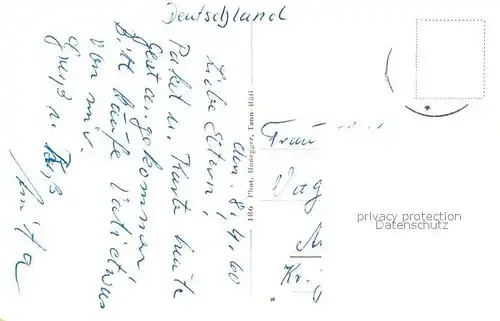 Deutschland
den. 8.4.60
Liebe Eltern,
Paket u. Karte heute
gut angekommen.
Bitte kaufe Vati etwas
von mir.
Gruß u. Kuß
Anita
186 Phot. Honegger, Tann-Rüti
Frau
Wag
Kr.
privacy protection
Datenschutz